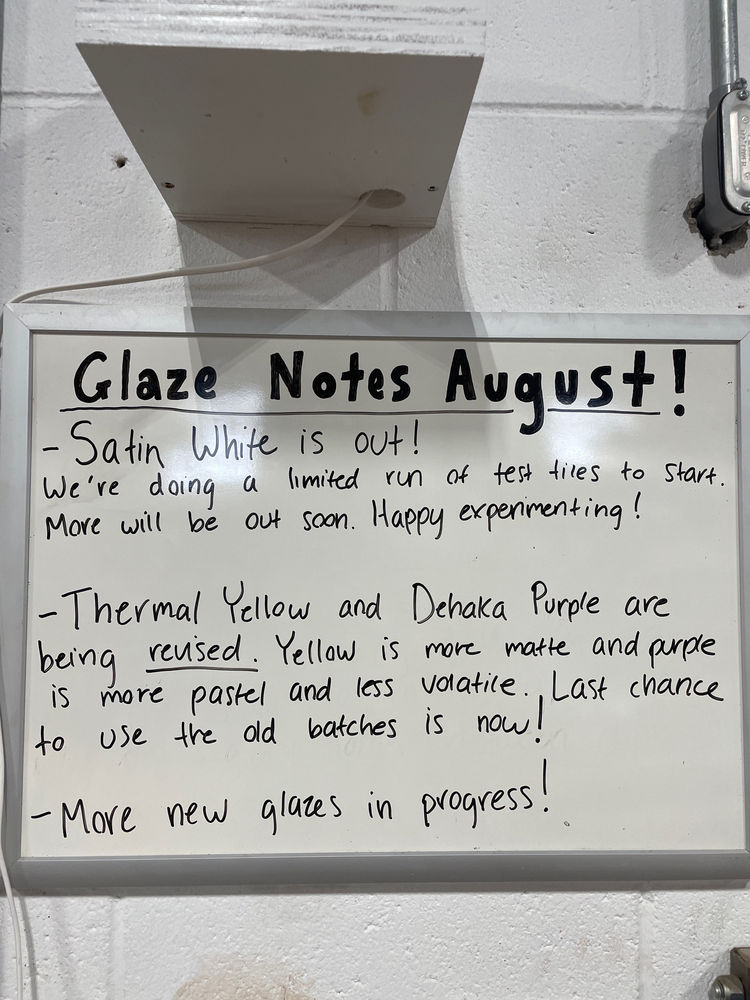 Glaze Notes August!
- Satin White is out!
We're doing a limited run of test tiles to start.
More will be out soon. Happy experimenting!
- Thermal Yellow and Dehaka Purple are
being revised. Yellow is more matte and purple
is more pastel and less volatile. Last chance
to use the old batches is now!
- More new glazes in progress!